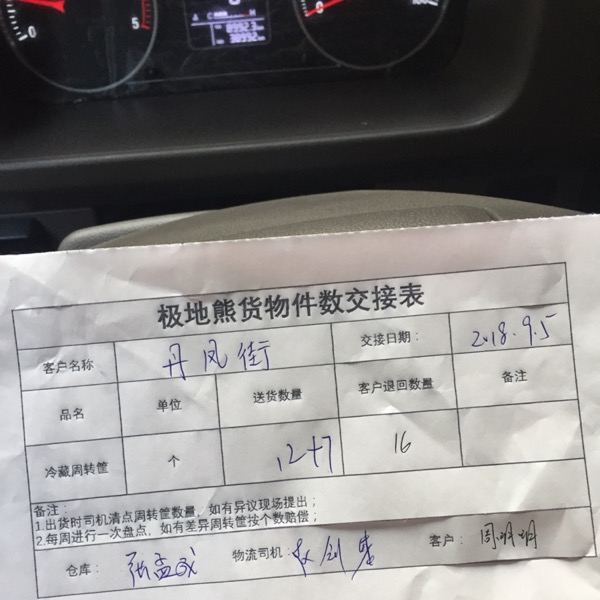 0 5 C H
极地熊货物件数交接表
客户名称 丹凤街 交接日期： 2018.9.5
品名 单位 送货数量 客户退回数量 备注
冷藏周转筐 个 12+7 16
备注：
1.出货时司机清点周转筐数量，如有异议现场提出；
2.每周进行一次盘点，如有差异周转筐按个数赔偿；
仓库： 张孟成 物流司机： 客户： 周玥玥